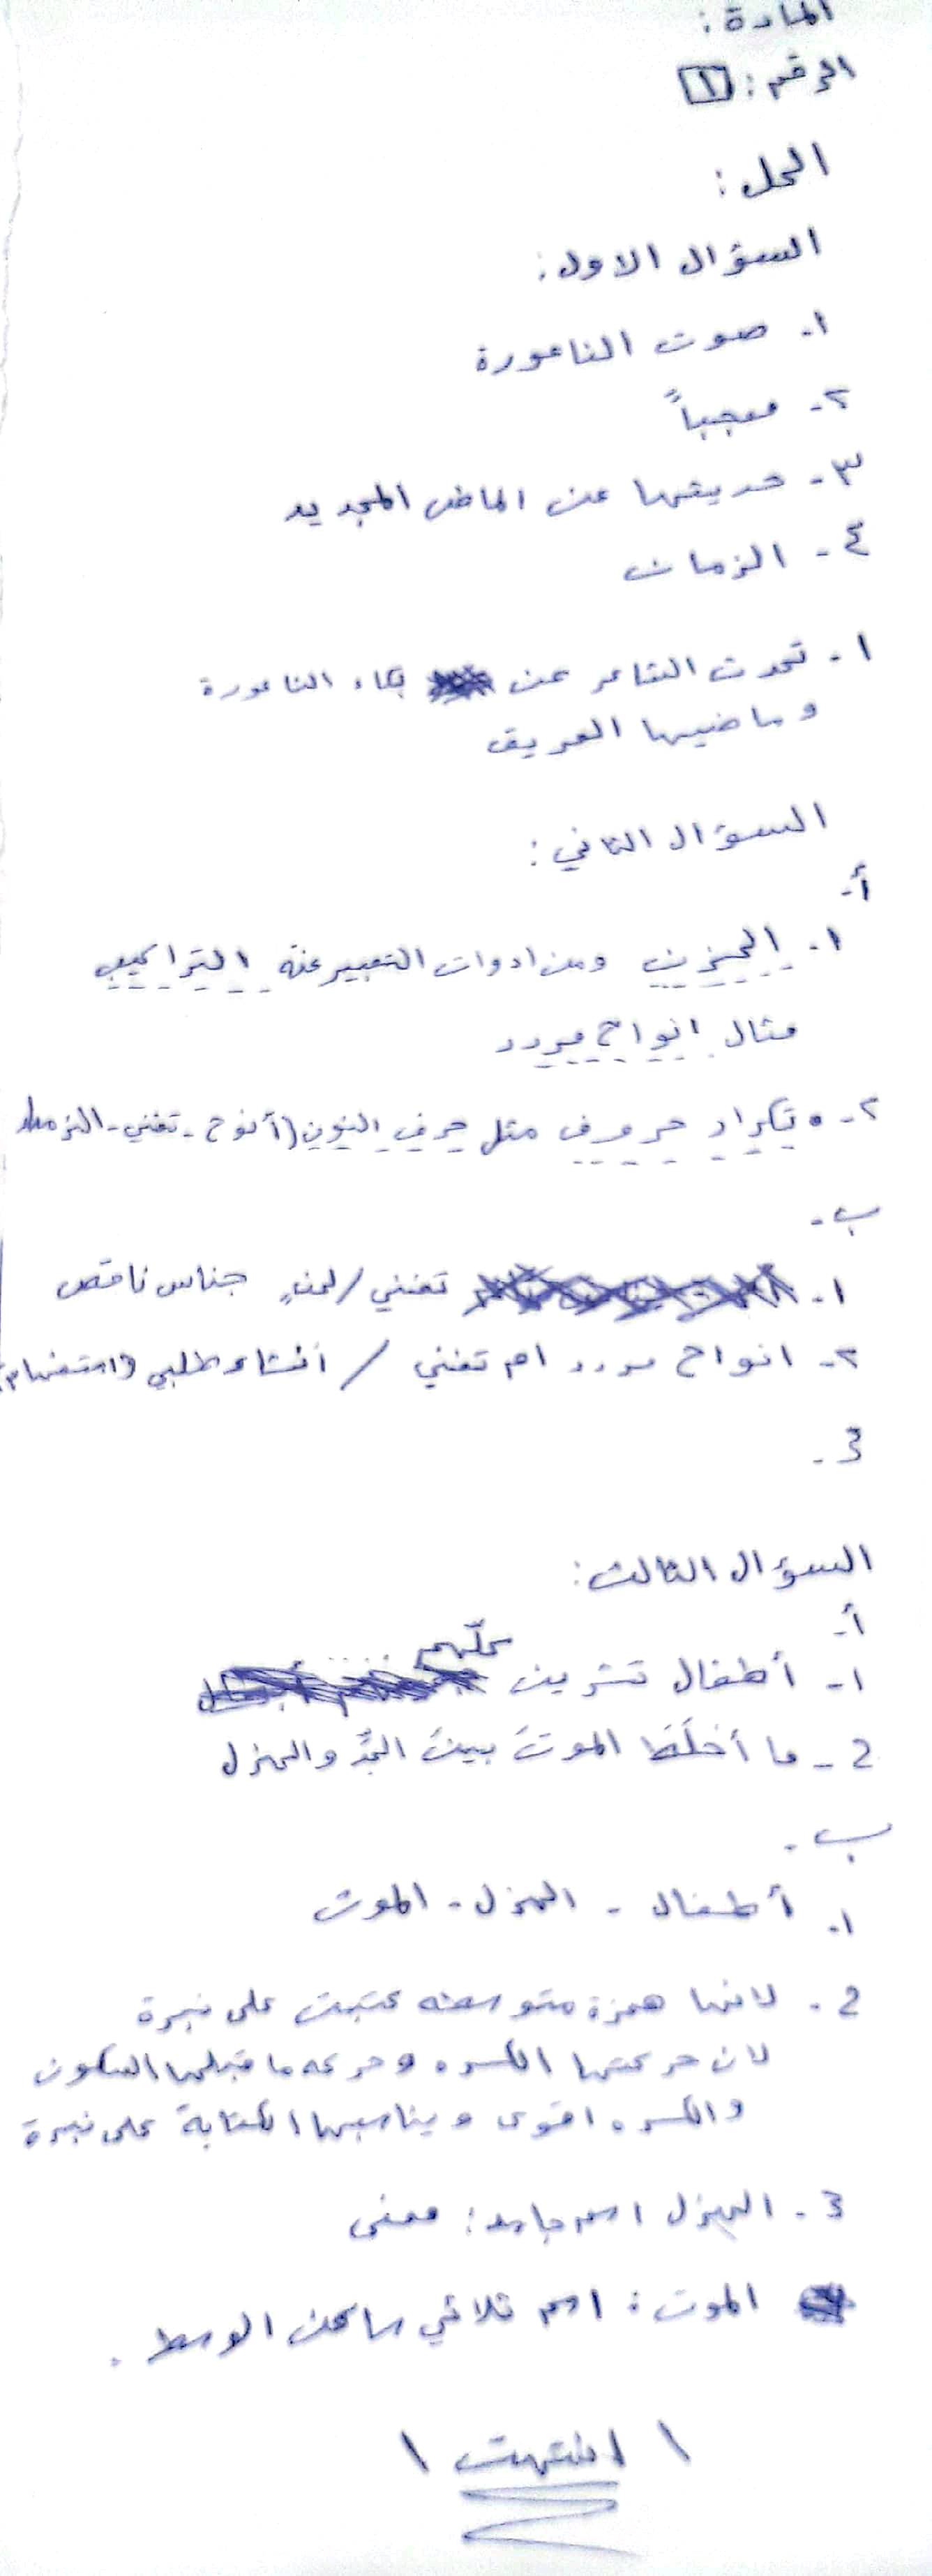 المادة:
الرقم: ١
الحل:
السؤال الاول:
١- صوت الناعورة
٢- معجباً
٣- حديثها عن الماضي المجديد
٤- الزمان
١- تحدث الشاعر عن بكاء الناعورة
وماضيها العريق
السؤال الثاني:
أ-
١- الحزن ومن ادوات التعبير عنه التراكيب
مثال انواح مردد
٢- تكرار حروف مثل حرف النون (أنوح - تغني - الزمان
ب-
١- تغني / لحنٍ جناس ناقص
٢- انواح مردد ام تغني / انشاء طلبي (استفهام)
3-
السؤال الثالث:
أ-
١- أطفال تشرين كلّهم
2- ما أخلَطَ الموتَ بينَ الجدِّ والهزل
ب-
١- أطفال - الهزل - الموت
2- لانها همزة متوسطه كتبت على نبرة
لان حركتها الكسره وحركه ما قبلها السكون
والكسره اقوى ويناسبها الكتابة على نبرة
3- الهزل اسم جامد: معنى
الموت: اسم ثلاثي ساكن الوسط.
\ انتهت \